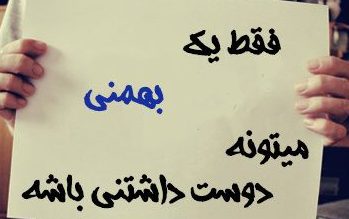 فقط یک
بهمنی
میتونه
دوست داشتنی باشه